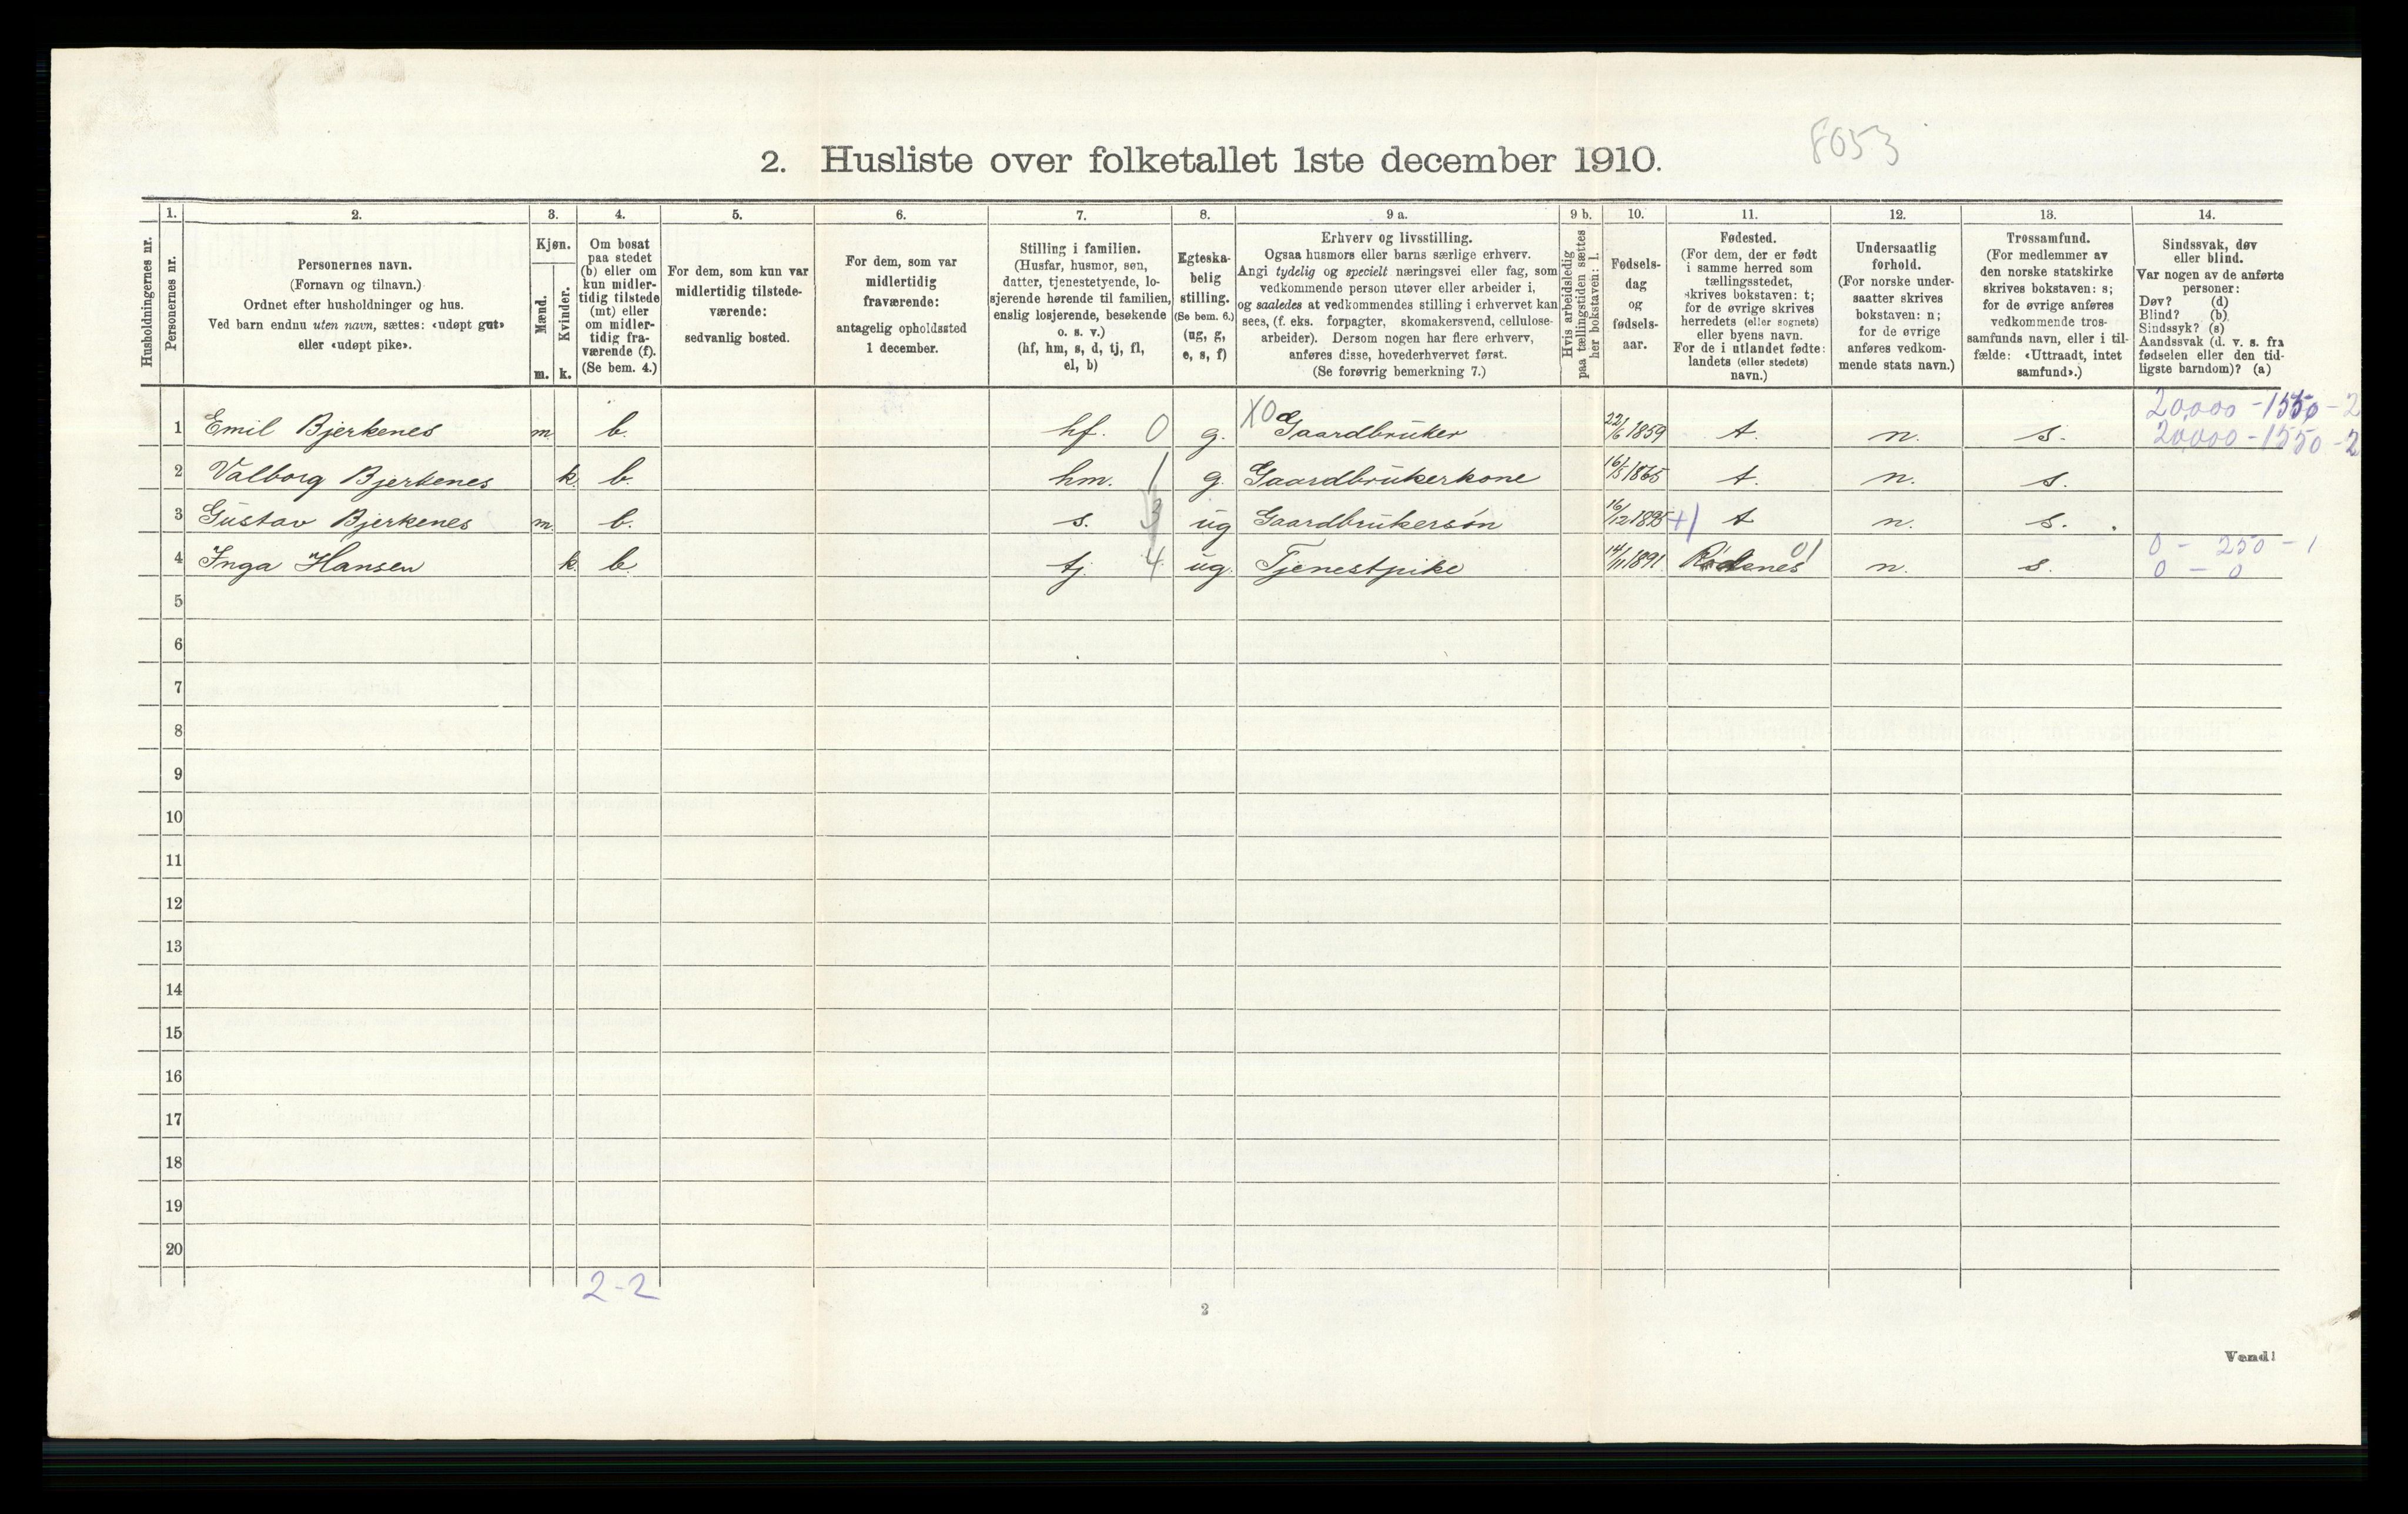 8053
2. Husliste over folketallet 1ste december 1910.
Husholdningernes nr.
1.
Personernes nr.
2.
Personernes navn.
(Fornavn og tilnavn.)
Ordnet efter husholdninger og hus.
Ved barn endnu uten navn, sættes: «udøpt gut»
eller «udøpt pike».
3.
Kjøn.
Mænd.
m.
Kvinder.
k.
4.
Om bosat
paa stedet
(b) eller om
kun midler-
tidig tilstede
(mt) eller
om midler-
tidig fra-
værende (f).
(Se bem. 4.)
5.
For dem, som kun var
midlertidig tilstede-
værende:
sedvanlig bosted.
6.
For dem, som var
midlertidig
fraværende:
antagelig opholdssted
1 december.
7.
Stilling i familien.
(Husfar, husmor, søn,
datter, tjenestetyende, lo-
sjerende hørende til familien,
enslig losjerende, besøkende
o. s. v.)
(hf, hm, s, d, tj, fl,
el, b)
8.
Egteska-
belig
stilling.
(Se bem. 6.)
(ug, g,
e, s, f)
9 a.
Erhverv og livsstilling.
Ogsaa husmors eller barns særlige erhverv.
Angi tydelig og specielt næringsvei eller fag, som
vedkommende person utøver eller arbeider i,
og saaledes at vedkommendes stilling i erhvervet kan
sees, (f. eks. forpagter, skomakersvend, cellulose-
arbeider). Dersom nogen har flere erhverv,
anføres disse, hovederhvervet først.
(Se forøvrig bemerkning 7.)
9 b.
Hvis arbeidsledig
paa tællingstiden sættes
her bokstaven: l.
10.
Fødsels-
dag
og
fødsels-
aar.
11.
Fødested.
(For dem, der er født
i samme herred som
tællingsstedet,
skrives bokstaven: t;
for de øvrige skrives
herredets (eller sognets)
eller byens navn.
For de i utlandet fødte:
landets (eller stedets)
navn.)
12.
Undersaatlig
forhold.
(For norske under-
saatter skrives
bokstaven: n;
for de øvrige
anføres vedkom-
mende stats navn.)
13.
Trossamfund.
(For medlemmer av
den norske statskirke
skrives bokstaven: s;
for de øvrige anføres
vedkommende tros-
samfunds navn, eller i til-
fælde: «Uttraadt, intet
samfund».)
14.
Sindssvak, døv
eller blind.
Var nogen av de anførte
personer:
Døv? (d)
Blind? (b)
Sindssyk? (s)
Aandssvak (d. v. s. fra
fødselen eller den tid-
ligste barndom)? (a)
20,000 - 1550 - 2
1 Emil Bjerkenes m. b. hf. 0 g. X0 Gaardbruker 22/6 1859 t. n. s. 20,000 - 1550 - 2
2 Valborg Bjerkenes k. b. hm. 1 g. Gaardbrukerkone 16/5 1865 t. n. s.
3 Gustav Bjerkenes m. b. s. 3 ug Gaardbrukersøn 16/12 1895 +1 t n. s.
0 - 250 - 1
4 Inga Hansen k. b. tj. 4 ug. Tjenestpike 14/11 1891 Rødenes 01 n. s. 0 - 0
5
6
7
8
9
10
11
12
13
14
15
16
17
18
19
20
2-2
2
Vend!